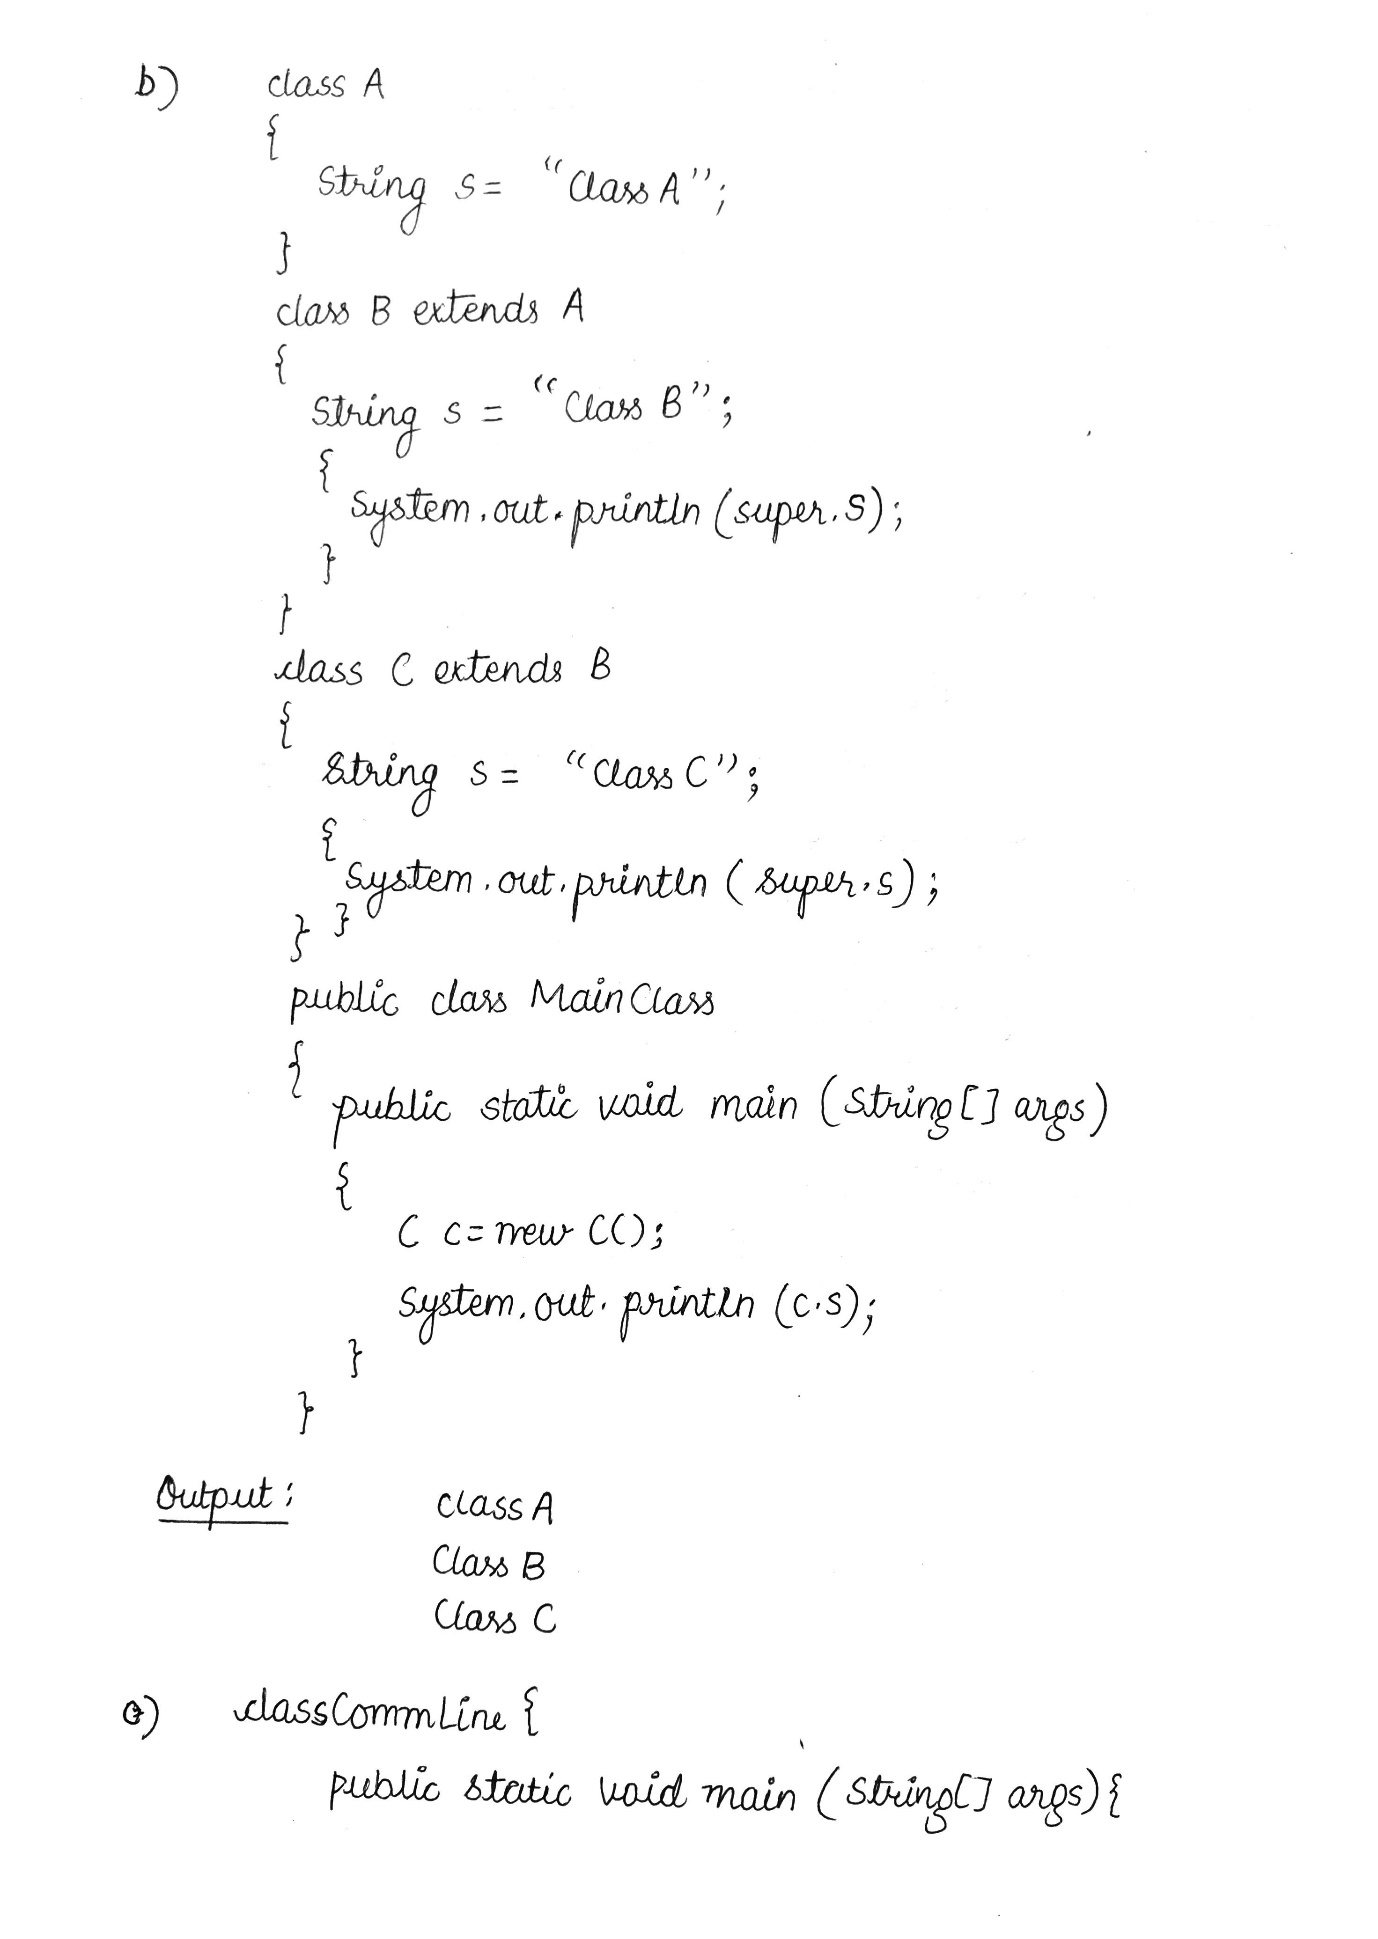 b) class A
{
String s= "Class A";
}
class B extends A
{
String s = "Class B";
{
System.out.println (super.S);
}
}
class C extends B
{
String s= "Class C";
{
System.out.println (super.s);
} }
public class MainClass
{
public static void main (String[] args)
{
C c=new C();
System.out.println (c.s);
}
}
Output: class A
Class B
Class C
classCommLine {
public static void main (String[] args){